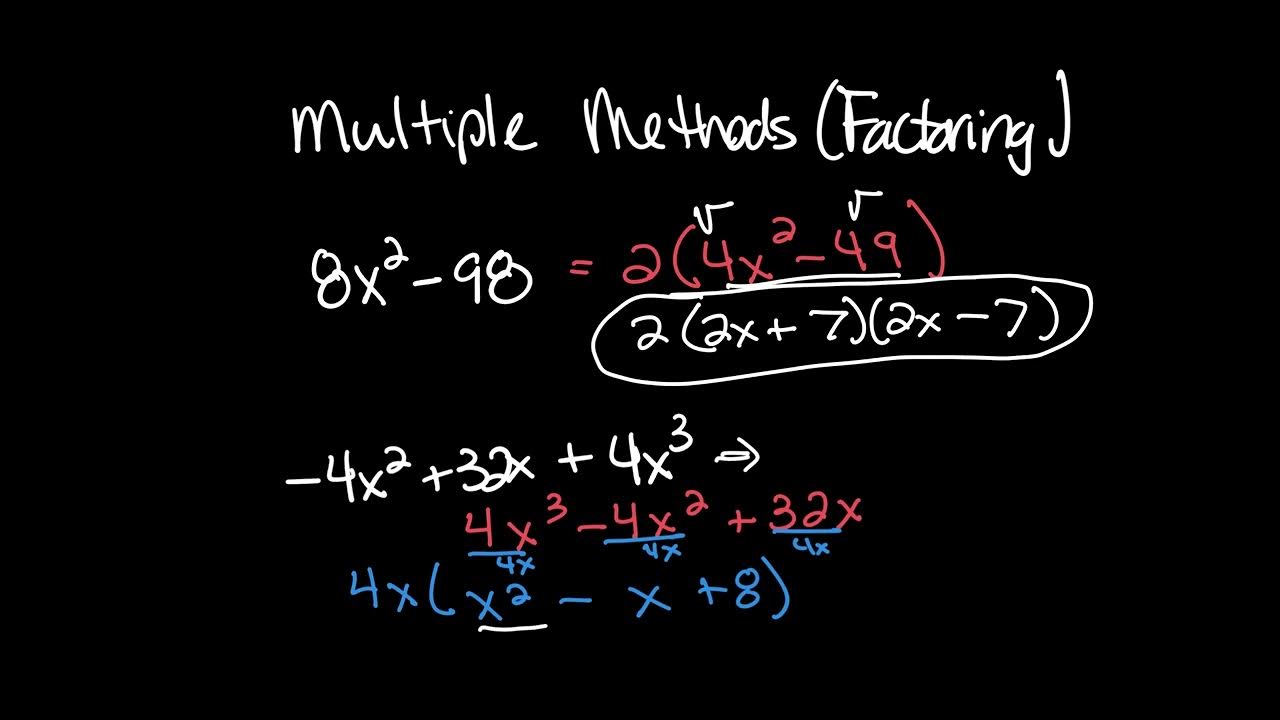 Multiple Methods (Factoring)
√ √
8x² - 98 = 2(4x² - 49)
2(2x + 7)(2x - 7)
-4x² + 32x + 4x³ ⇒
4x³ - 4x² + 32x
4x 4x 4x
4x(x² - x + 8)